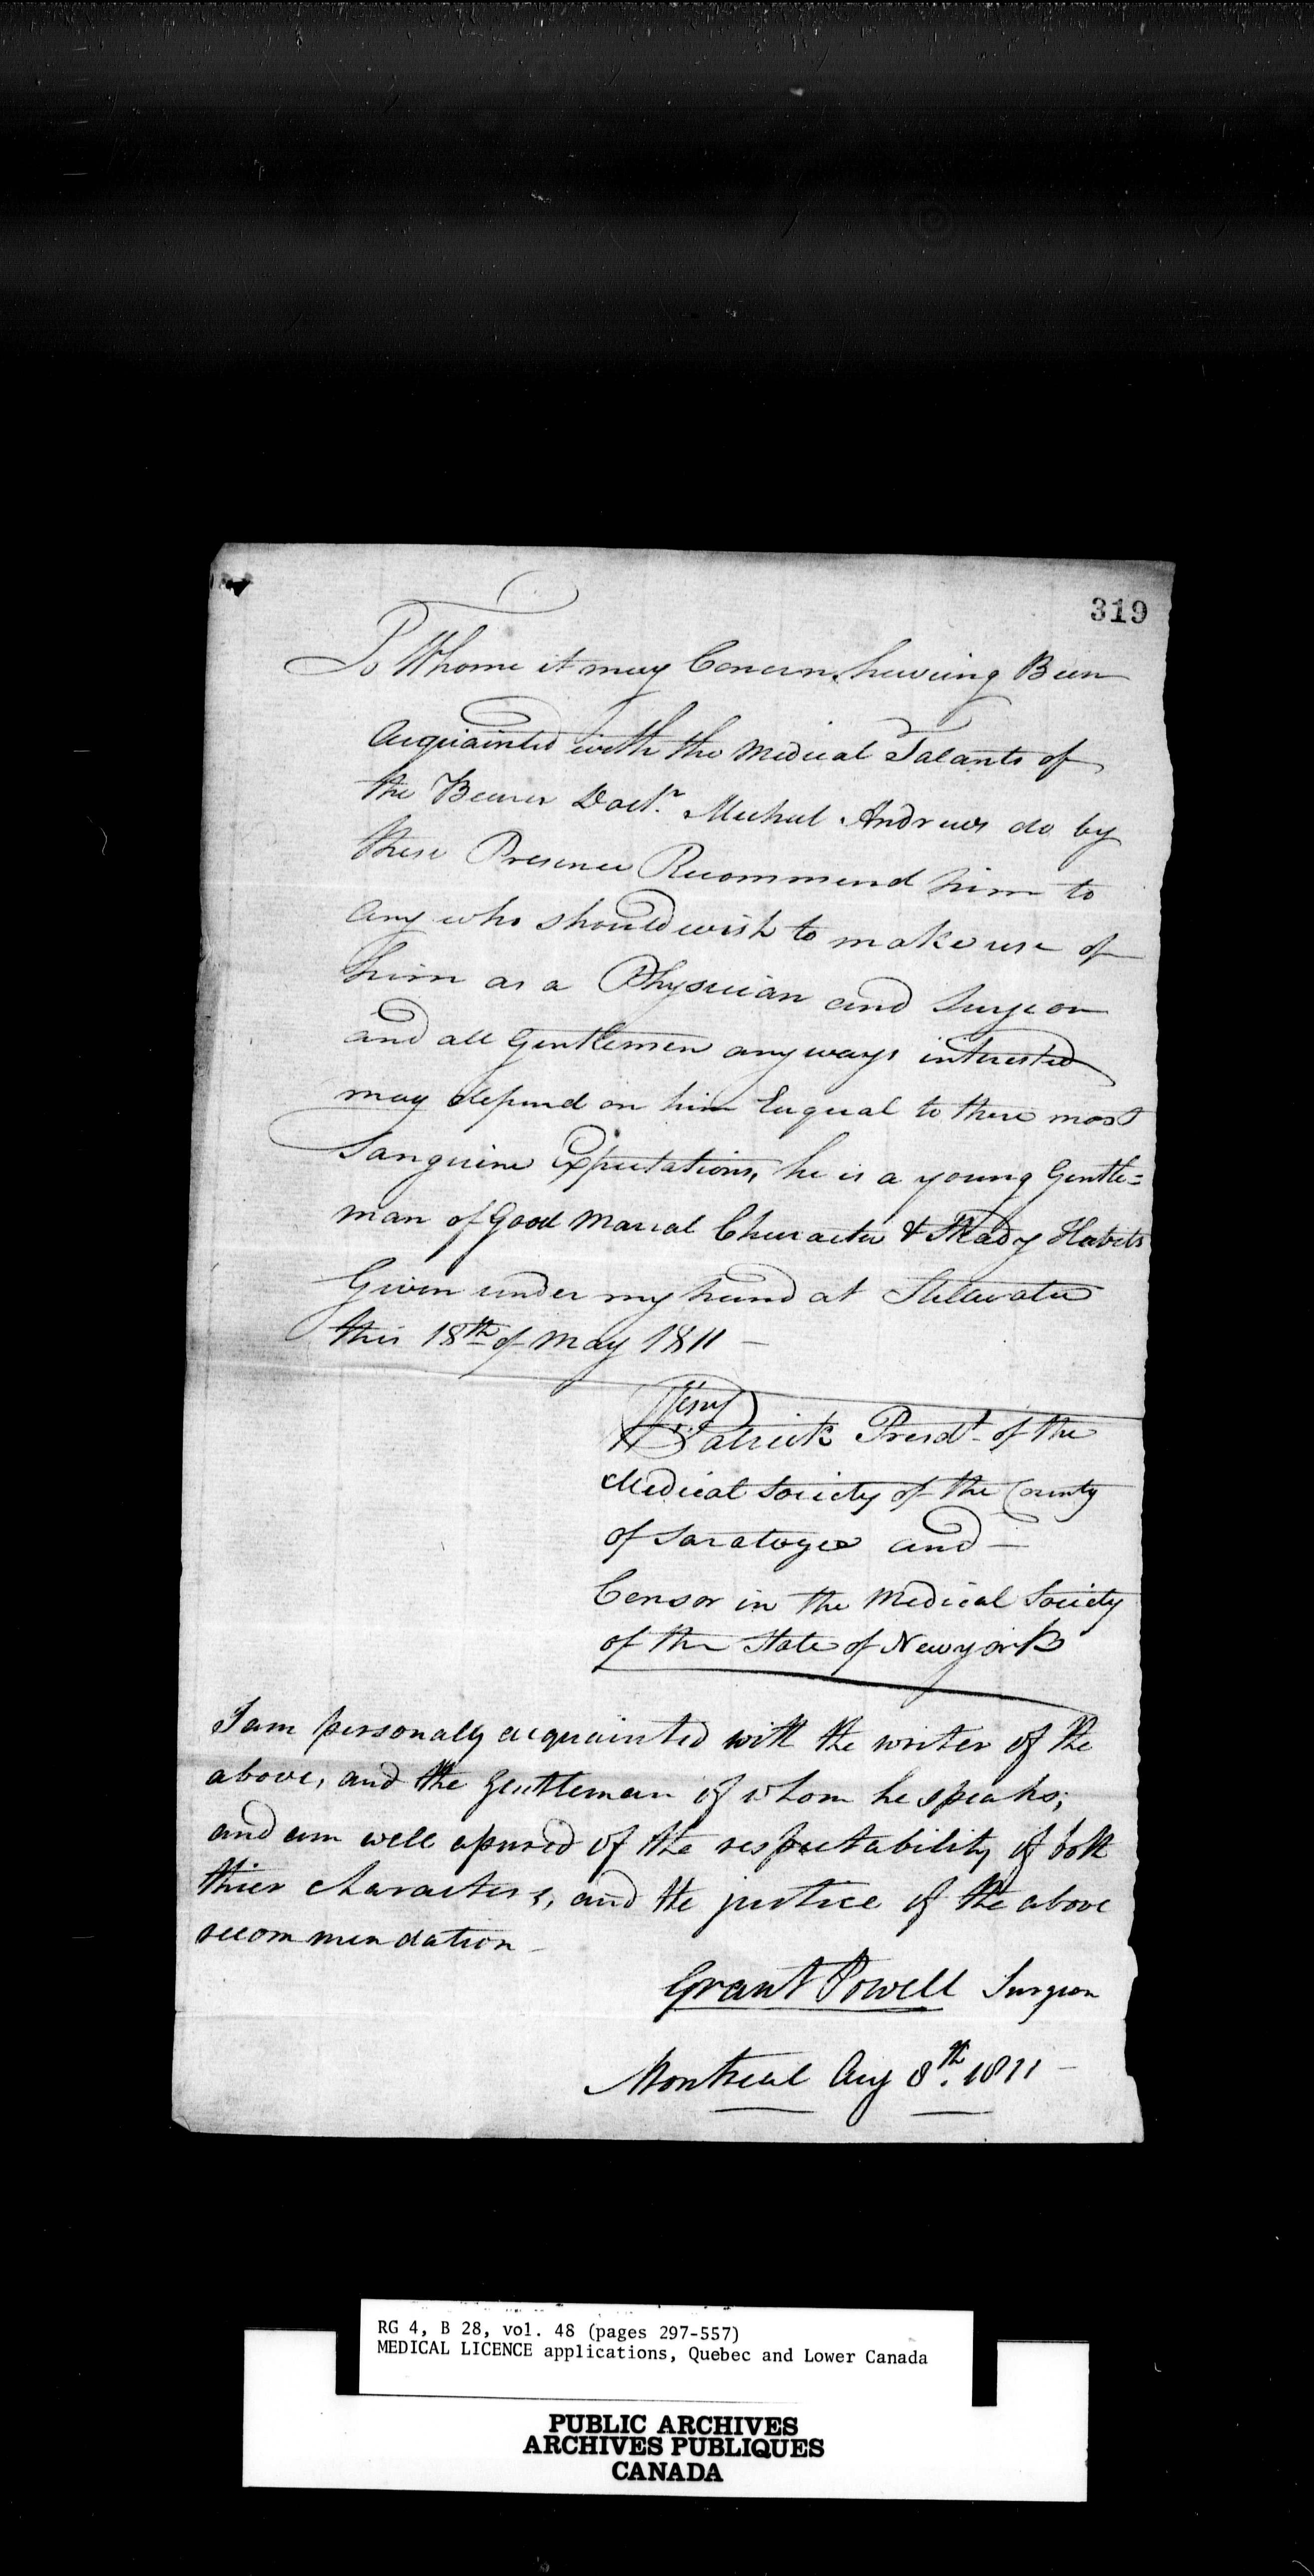 319
To Whome it may Concern, haveing Been
Acquainted with the Medical Talants of
the Bearer Doct.r Michal Andrews do by
these Presence Recommend him to
Any who should wish to make use of
him as a Physician and Surgeon
and all Gentlemen anyways interested
may depend on him Eugual to there most
Sanguine Expectations, he is a young Gentle=
man of Good Maral Character & Steady Habits
Given under my hand at Stillwater
this 18th of May 1811 —
Patrick Presdt of the
Medical Society of the County
of Saratoga and —
Censor in the Medical Society
of the State of Newyork
I am personally acquainted with the writer of the
above, and the Gentleman of whom he speaks;
and am well assured of the respectability of both
thier characters, and the justice of the above
recommendation —
Grant Powell Surgeon
Montreal Aug 8th. 1811 —
RG 4, B 28, vol. 48 (pages 297-557)
MEDICAL LICENCE applications, Quebec and Lower Canada
PUBLIC ARCHIVES
ARCHIVES PUBLIQUES
CANADA